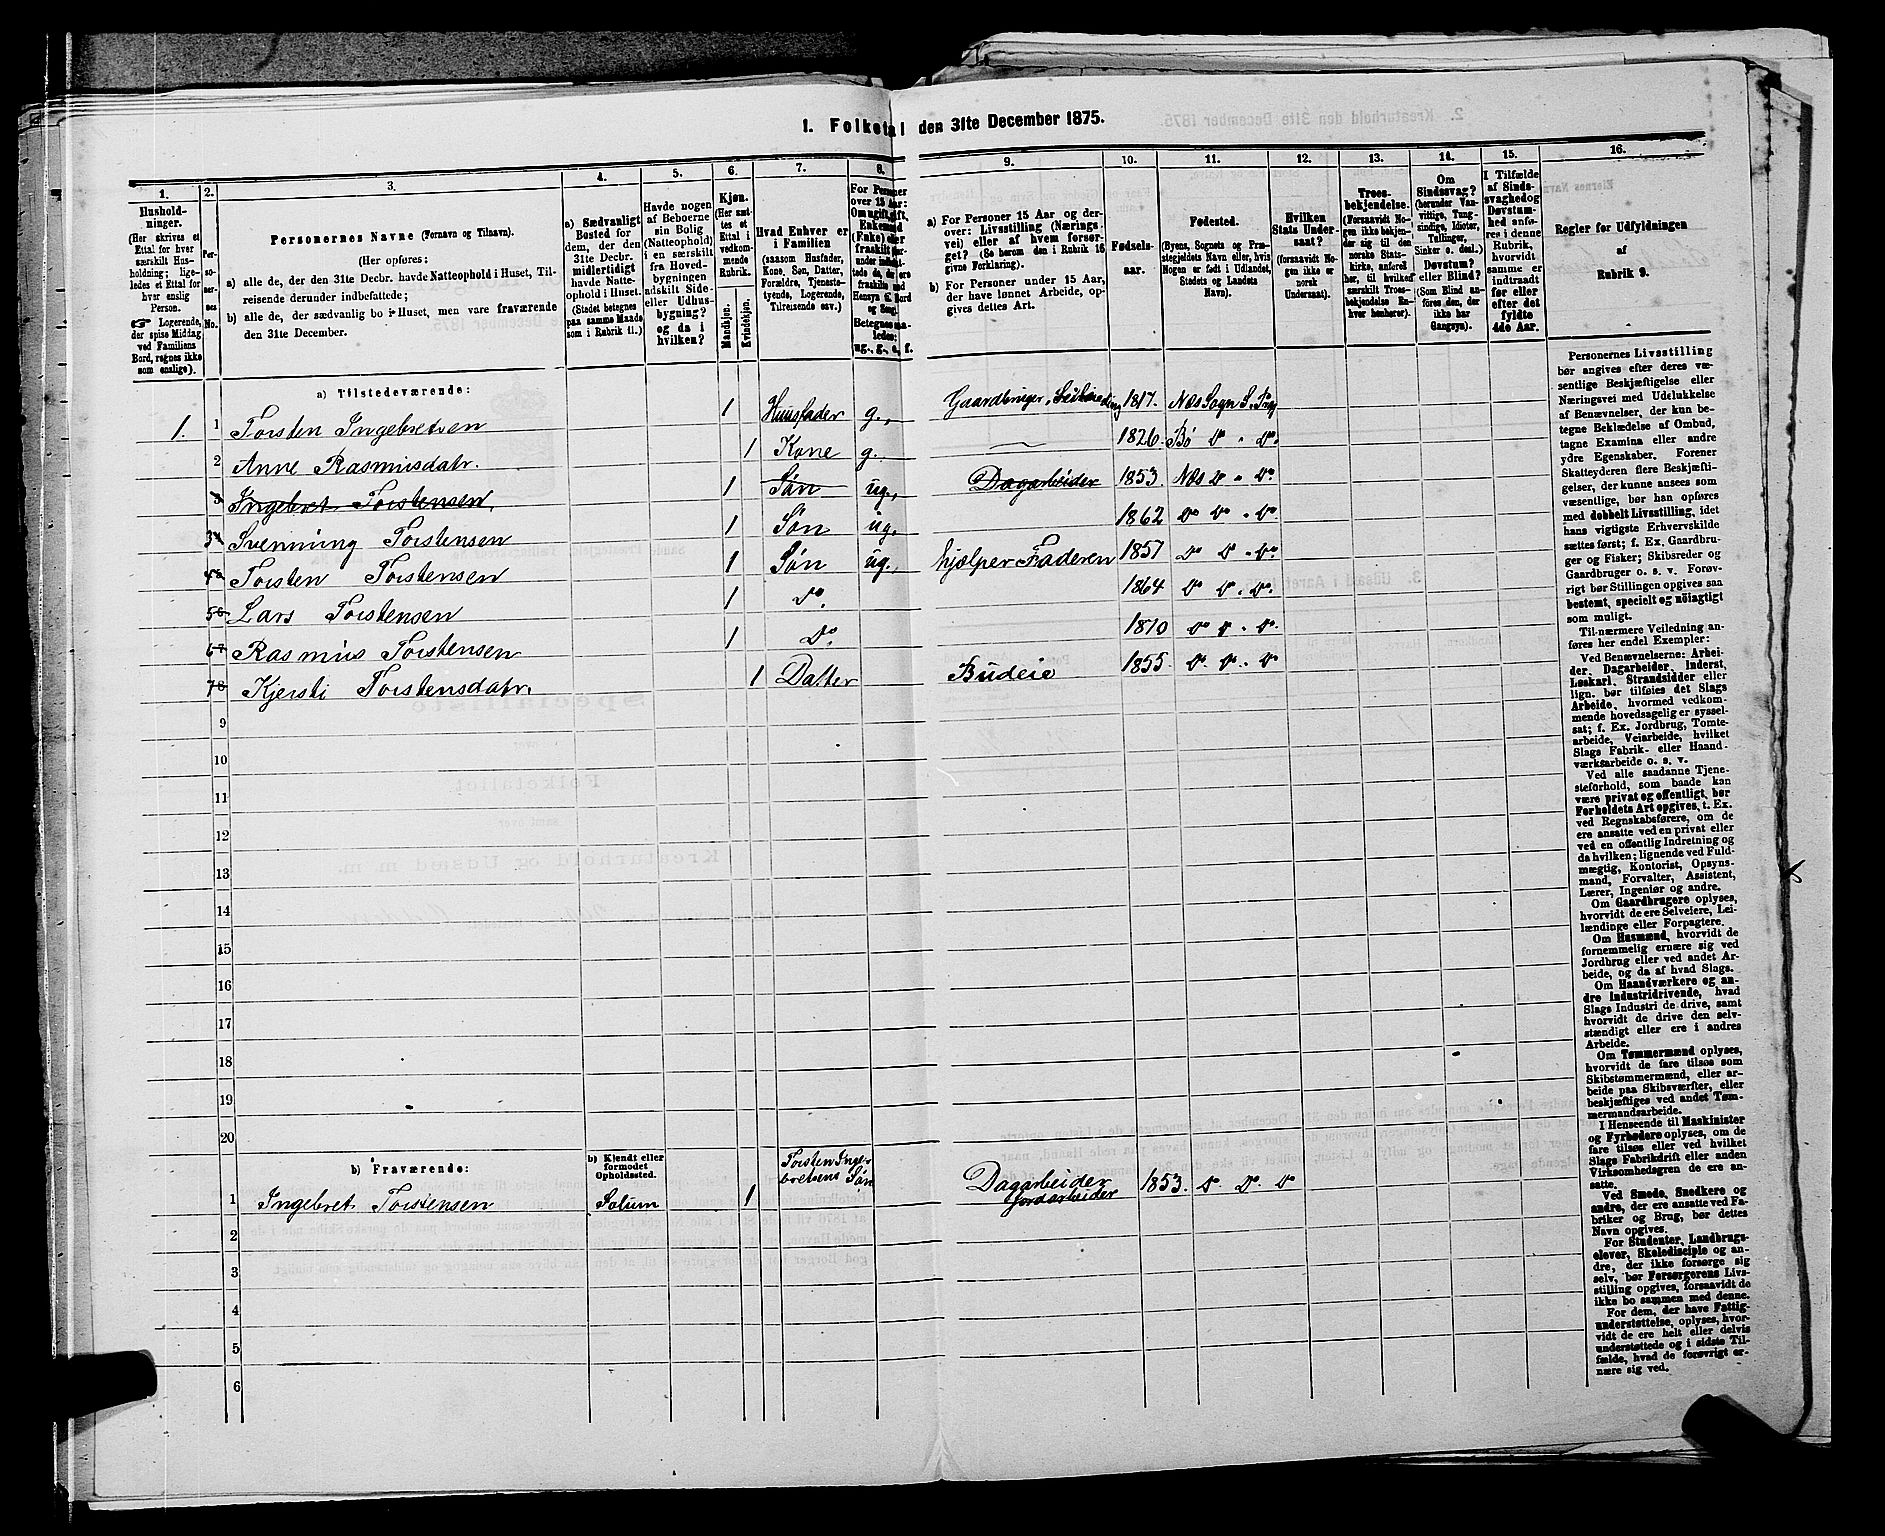 1. Folketal den 31te December 1875.
1.
Hushold-
ninger.
(Her skrives et
Ettal for hver
særskilt Hus-
holdning; lige-
ledes et Ettal for
hver enslig
Person.
Logerende,
der spise Middag
ved Familiens
Bord, regnes ikke
som enslige).
2.
Per-
so-
ner-
nes
No.
3.
Personernes Navne (Fornavn og Tilnavn).
(Her opføres:
a) alle de, der den 31te Decbr. havde Natteophold i Huset, Til-
reisende derunder indbefattede;
b) alle de, der sædvanlig bo i Huset, men vare fraværende
den 31te December.
4.
a) Sædvanligt
Bosted for
dem, der den
31te Decbr.
midlertidigt
havde Natte-
ophold i Huset.
(Stedet betegnes
paa samme Maade
som i Rubrik 11.)
5.
Havde nogen
af Beboerne
sin Bolig
(Natteophold)
i en særskilt
fra Hoved-
bygningen
adskilt Side-
eller Udhus-
bygning?
og da i
hvilken?
6.
Kjøn.
(Her sæt-
tes et
Ettal i
vedkom-
mende
Rubrik.
Mandkjøn.
Kvindekjøn.
7.
Hvad Enhver er
i Familien
(saasom Husfader,
Kone, Søn, Datter,
Forældre, Tjeneste-
tyende, Logerende,
Tilreisende osv.)
8.
For Personer
over 15 Aar:
Om ugift, gift,
Enkemand
(Enke) eller
fraskilt
Betegnes
ledes:
ug., g., e., f.
9.
a) For Personer 15 Aar og der-
over: Livsstilling (Nærings-
vei) eller af hvem forsør-
get? (Se herom den i Rubrik 16
givne Forklaring).
b) For Personer under 15 Aar,
der have lønnet Arbeide, op-
gives dettes Art.
10.
Fødsels-
aar.
11.
Fødested.
(Byens, Sognets og Præ-
stegjeldets Navn eller, hvis
Nogen er født i Udlandet,
Stedets og Landets
Navn).
12.
Hvilken
Stats Under-
saat?
(forsaavidt No-
gen ikke er
norsk
Undersaat).
13.
Troes-
bekjendelse.
(Forsaavidt No-
gen ikke bekjen-
der sig til den
norske Stats-
kirke, anføres
til hvilken
særskilt Troes-
bekjendelse En-
hver henhører).
14.
Om
Sindssvag?
(herunder Van-
vittige, Tung-
sindige, Idioter,
Tullinger,
Sinker o. desl.)
Døvstum?
eller Blind?
(Som Blind an-
føres den, der
ikke har
Gangsyn).
15.
I Tilfælde
af Sinds-
svaghed og
Døvstum-
hed anfø-
res i denne
Rubrik,
hvorvidt
samme er
indtraadt
før eller
efter det
fyldte
4de Aar.
16.
Regler for Udfyldningen
af
Rubrik 9.
a) Tilstedeværende:
1. 1 Torsten Ingebretsen 1 Huusfader g., Gaardbruger, Leilænding 1817. Næs Sogn
2 Anne Rasmusdatr. 1 Kone g. 1826 Bø Do. Do.
3 Ingebret Torstensen. 1 Søn ug., Dagarbeider 1853 Næs Do. Do.
3 4 Svenning Torstensen 1 Søn ug, 1862 Do Do. Do.
4 5 Torsten Torstensen 1 Søn ug., hjælper Faderen 1857 Do Do. Do.
5 6 Lars Torstensen 1 Do. 1864 Do Do. Do.
6 7 Rasmus Torstensen 1 Do. 1870 Do Do. Do.
7 8 Kjersti Torstensdatr. 1 Datter Budeie 1855. Do. Do. Do
9
10
11
12
13
14
15
16
17
18
19
20
b) Fraværende:
b) Kjendt eller
formodet
Opholdssted.
1 Ingebret Torstensen Solum 1 Torsten Inge-
bretsens Søn Dagarbeider
Jordarbeider 1853. Do. Do. Do
2
3
4
5
6
Personernes Livsstilling
bør angives efter deres væ-
sentlige Beskjæftigelse eller
Næringsvei med Udelukkelse
af Benævnelser, der kun be-
tegne Beklædelse af Ombud,
tagne Examina eller andre
ydre Egenskaber. Forener
Skatteyderen flere Beskjæfti-
gelser, der kunne ansees som
væsentlige, bør han opføres
med dobbelt Livsstilling, idet
hans vigtigste Erhvervskilde
sættes først; f. Ex. Gaardbru-
ger og Fisker; Skibsreder og
Gaardbruger o. s. v. Forøv-
rigt bør Stillingen opgives saa
bestemt, specielt og nöiagtigt
som muligt.
Til nærmere Veiledning an-
føres her endel Exempler:
Ved Benævnelserne: Arbei-
der, Dagarbeider, Inderst,
Løskarl, Strandsidder eller
lign. bør tilføies det Slags
Arbeide, hvormed vedkom-
mende hovedsagelig er syssel-
sat; f. Ex. Jordbrug, Tomte-
arbeide, Veiarbeide, hvilket
Slags Fabrik- eller Haand-
værksarbeide o. s. v.
Ved alle saadanne Tjene-
steforhold, som baade kan
være privat og offentligt, bør
Forholdets Art opgives, t. Ex.
ved Regnskabsførere, om de
ere ansatte ved en privat eller
ved en offentlig Indretning og
da hvilken; lignende ved Fuld-
mægtig, Kontorist, Opsyns-
mand, Forvalter, Assistent,
Lærer, Ingeniør og andre.
Om Gaardbrugere oplyses,
hvorvidt de ere Selveiere, Lei-
lændinge eller Forpagtere.
Om Husmænd, hvorvidt de
fornemmelig ernære sig ved
Jordbrug eller ved andet Ar-
beide, og da af hvad Slags.
Om Haandværkere og an-
dre Industridrivende, hvad
Slags Industri de drive, samt
hvorvidt de drive den selv-
stændigt eller ere i andres
Arbeide.
Om Tømmermænd oplyses,
hvorvidt de fare tilsøs som
Skibstømmermænd, eller ar-
beide paa Skibsværfter, eller
beskjæftiges ved andet Tøm-
mermandsarbeide.
I Henseende til Maskinister
og Fyrbødere oplyses, om de
fare tilsøs eller ved hvilket
Slags Fabrikdrift eller anden
Virksomhedsgren de ere an-
satte.
Ved Smede, Snedkere og
andre, der ere ansatte ved Fa-
briker og Brug, bør dettes
Navn opgives.
For Studenter, Landbrugs-
elever, Skoledisciple og an-
dre, der ikke forsørge sig
selv, bør Forsørgerens Livs-
stilling opgives, forsaavidt de
ikke bo sammen med denne.
For dem, der have Fattig-
understøttelse, oplyses, hvor-
vidt de ere helt eller delvis
understøttede og i sidste Til-
fælde, hvad de forøvrigt er-
nære sig ved.